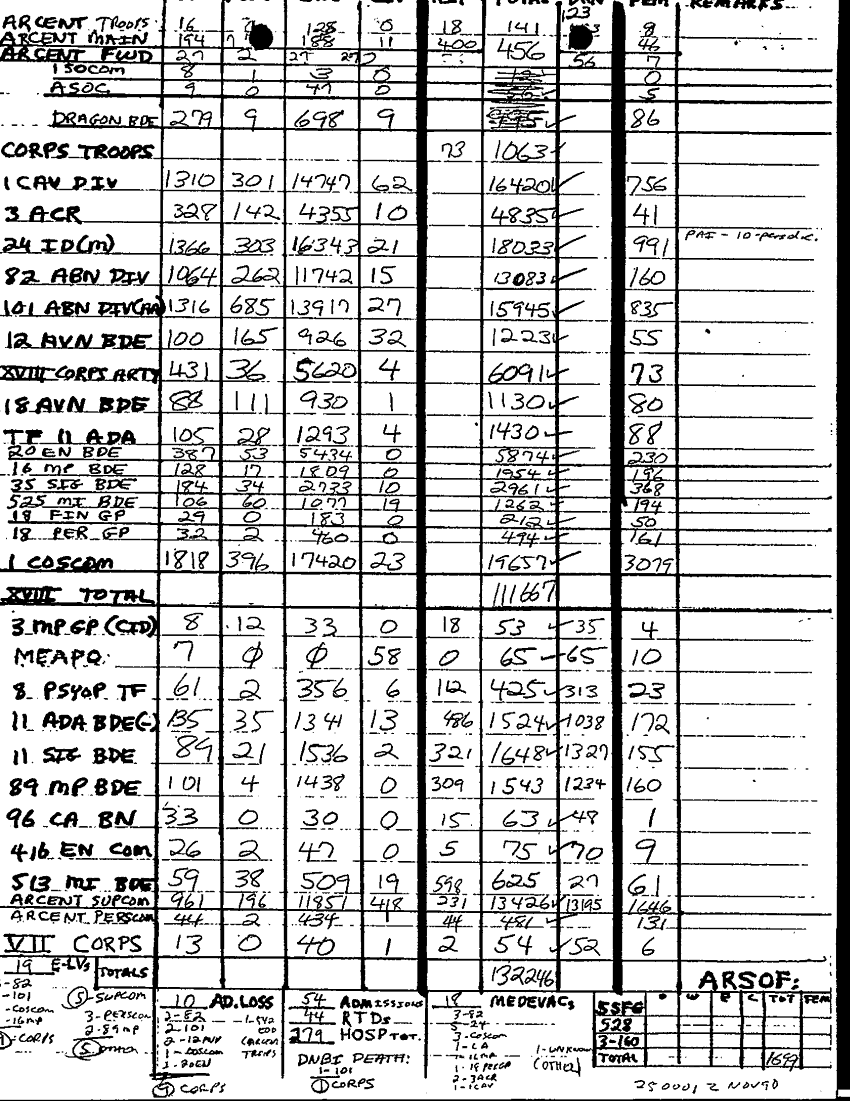 TOTAL FEM REMARKS
123
ARCENT TROOPS 16 128 0 18 141 9
ARCENT MAIN 194 188 11 400 456 46
ARCENT FWD 27 2 27 56 7
1 SOCOM 8 1 3 0 0
ASOC 9 0 47 0 5
DRAGON BDE 279 9 698 9 86
CORPS TROOPS 73 1063
1 CAV DIV 1310 301 14747 62 16420 756
3 ACR 328 142 4355 10 4835 41
24 ID(M) 1366 303 16343 21 18033 991
82 ABN DIV 1064 262 11742 15 13083 160
101 ABN DIV(AA) 1316 685 13917 27 15945 835
12 AVN BDE 100 165 926 32 1223 55
XVIII CORPS ARTY 431 36 5620 4 6091 73
18 AVN BDE 88 111 930 1 1130 80
TF 11 ADA 105 28 1293 4 1430 88
20 EN BDE 387 53 5434 0 5874 230
16 MP BDE 128 17 1809 0 1954 196
35 SIG BDE 184 34 2733 10 2961 368
525 MI BDE 106 60 1077 19 1262 194
18 FIN GP 29 0 183 0 212 50
18 PER GP 32 2 460 0 494 161
1 COSCOM 1818 396 17420 23 19657 3079
XVIII TOTAL 111667
3 MP GP (CID) 8 12 33 0 18 53 35 4
MEAPO 7 Ø Ø 58 0 65 65 10
8 PSYOP TF 61 2 356 6 112 425 313 23
11 ADA BDE(-) 135 35 1341 13 486 1524 1038 172
11 SIG BDE 89 21 1536 2 321 1648 1327 155
89 MP BDE 101 4 1438 0 309 1543 1234 160
96 CA BN 33 0 30 0 15 63 48 1
416 EN COM 26 2 47 0 5 75 70 9
513 MI BDE 59 38 509 19 598 625 27 61
ARCENT SUPCOM 961 196 11851 418 231 13426 13195 1646
ARCENT PERSCOM 44 2 434 1 44 481 131
VII CORPS 13 0 40 1 2 54 52 6
19 E-LVs TOTALS 132246
ARSOF:
-82
-101
-COSCOM
-16MP
CORPS
5-SUPCOM
3-PERSCOM
2-89MP
5
10 AD.LOSS
2-82
2-101
1-COSCOM
1-20EN
9 CORPS
54 ADMISSIONS
44 RTDs
279 HOSP TOT.
DNBI DEATH:
1-101
1 CORPS
18 MEDEVACs
3-82
5-24
3-COSCOM
1-CA
1-16MP
2-3ACR
1-1CAV
1-UNKNOWN
(OTHER)
O W E C TOT FEM
5SFG
528
3-160
TOTAL 1699
250001 Z NOV90